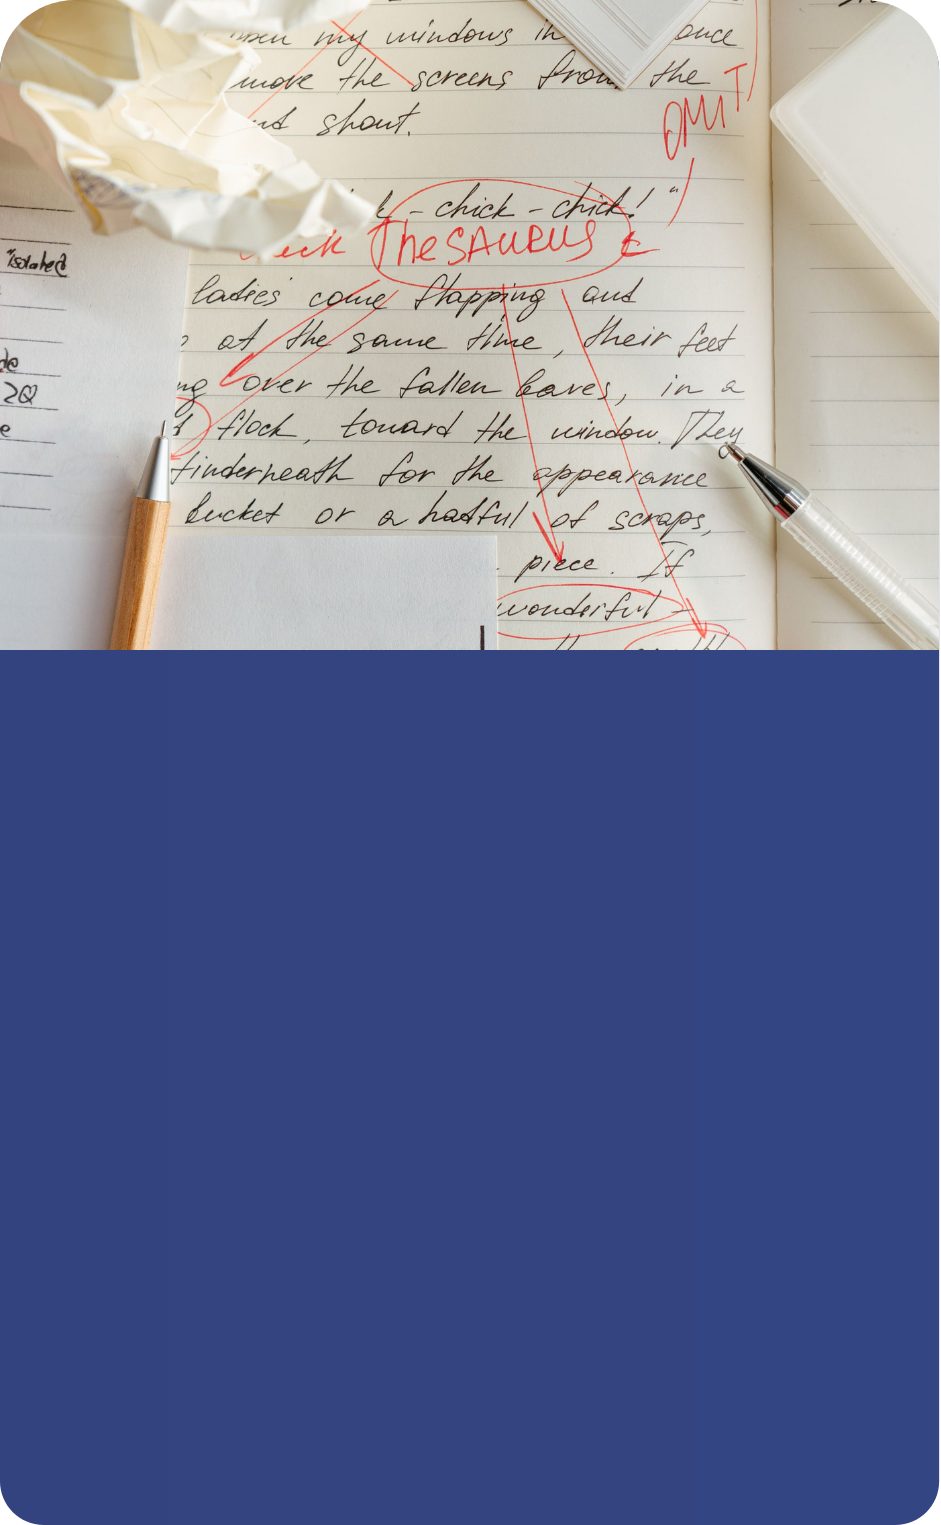 my windows in once
move the screens from the
and shout.
OMIT
- chick - chick!"
THESAURUS
"isolated
ladies come flapping and
at the same time, their feet
ng over the fallen leaves, in a
flock, toward the window. They
underneath for the appearance
bucket or a hatful of scraps,
2Q
e
piece. If
wonderful -